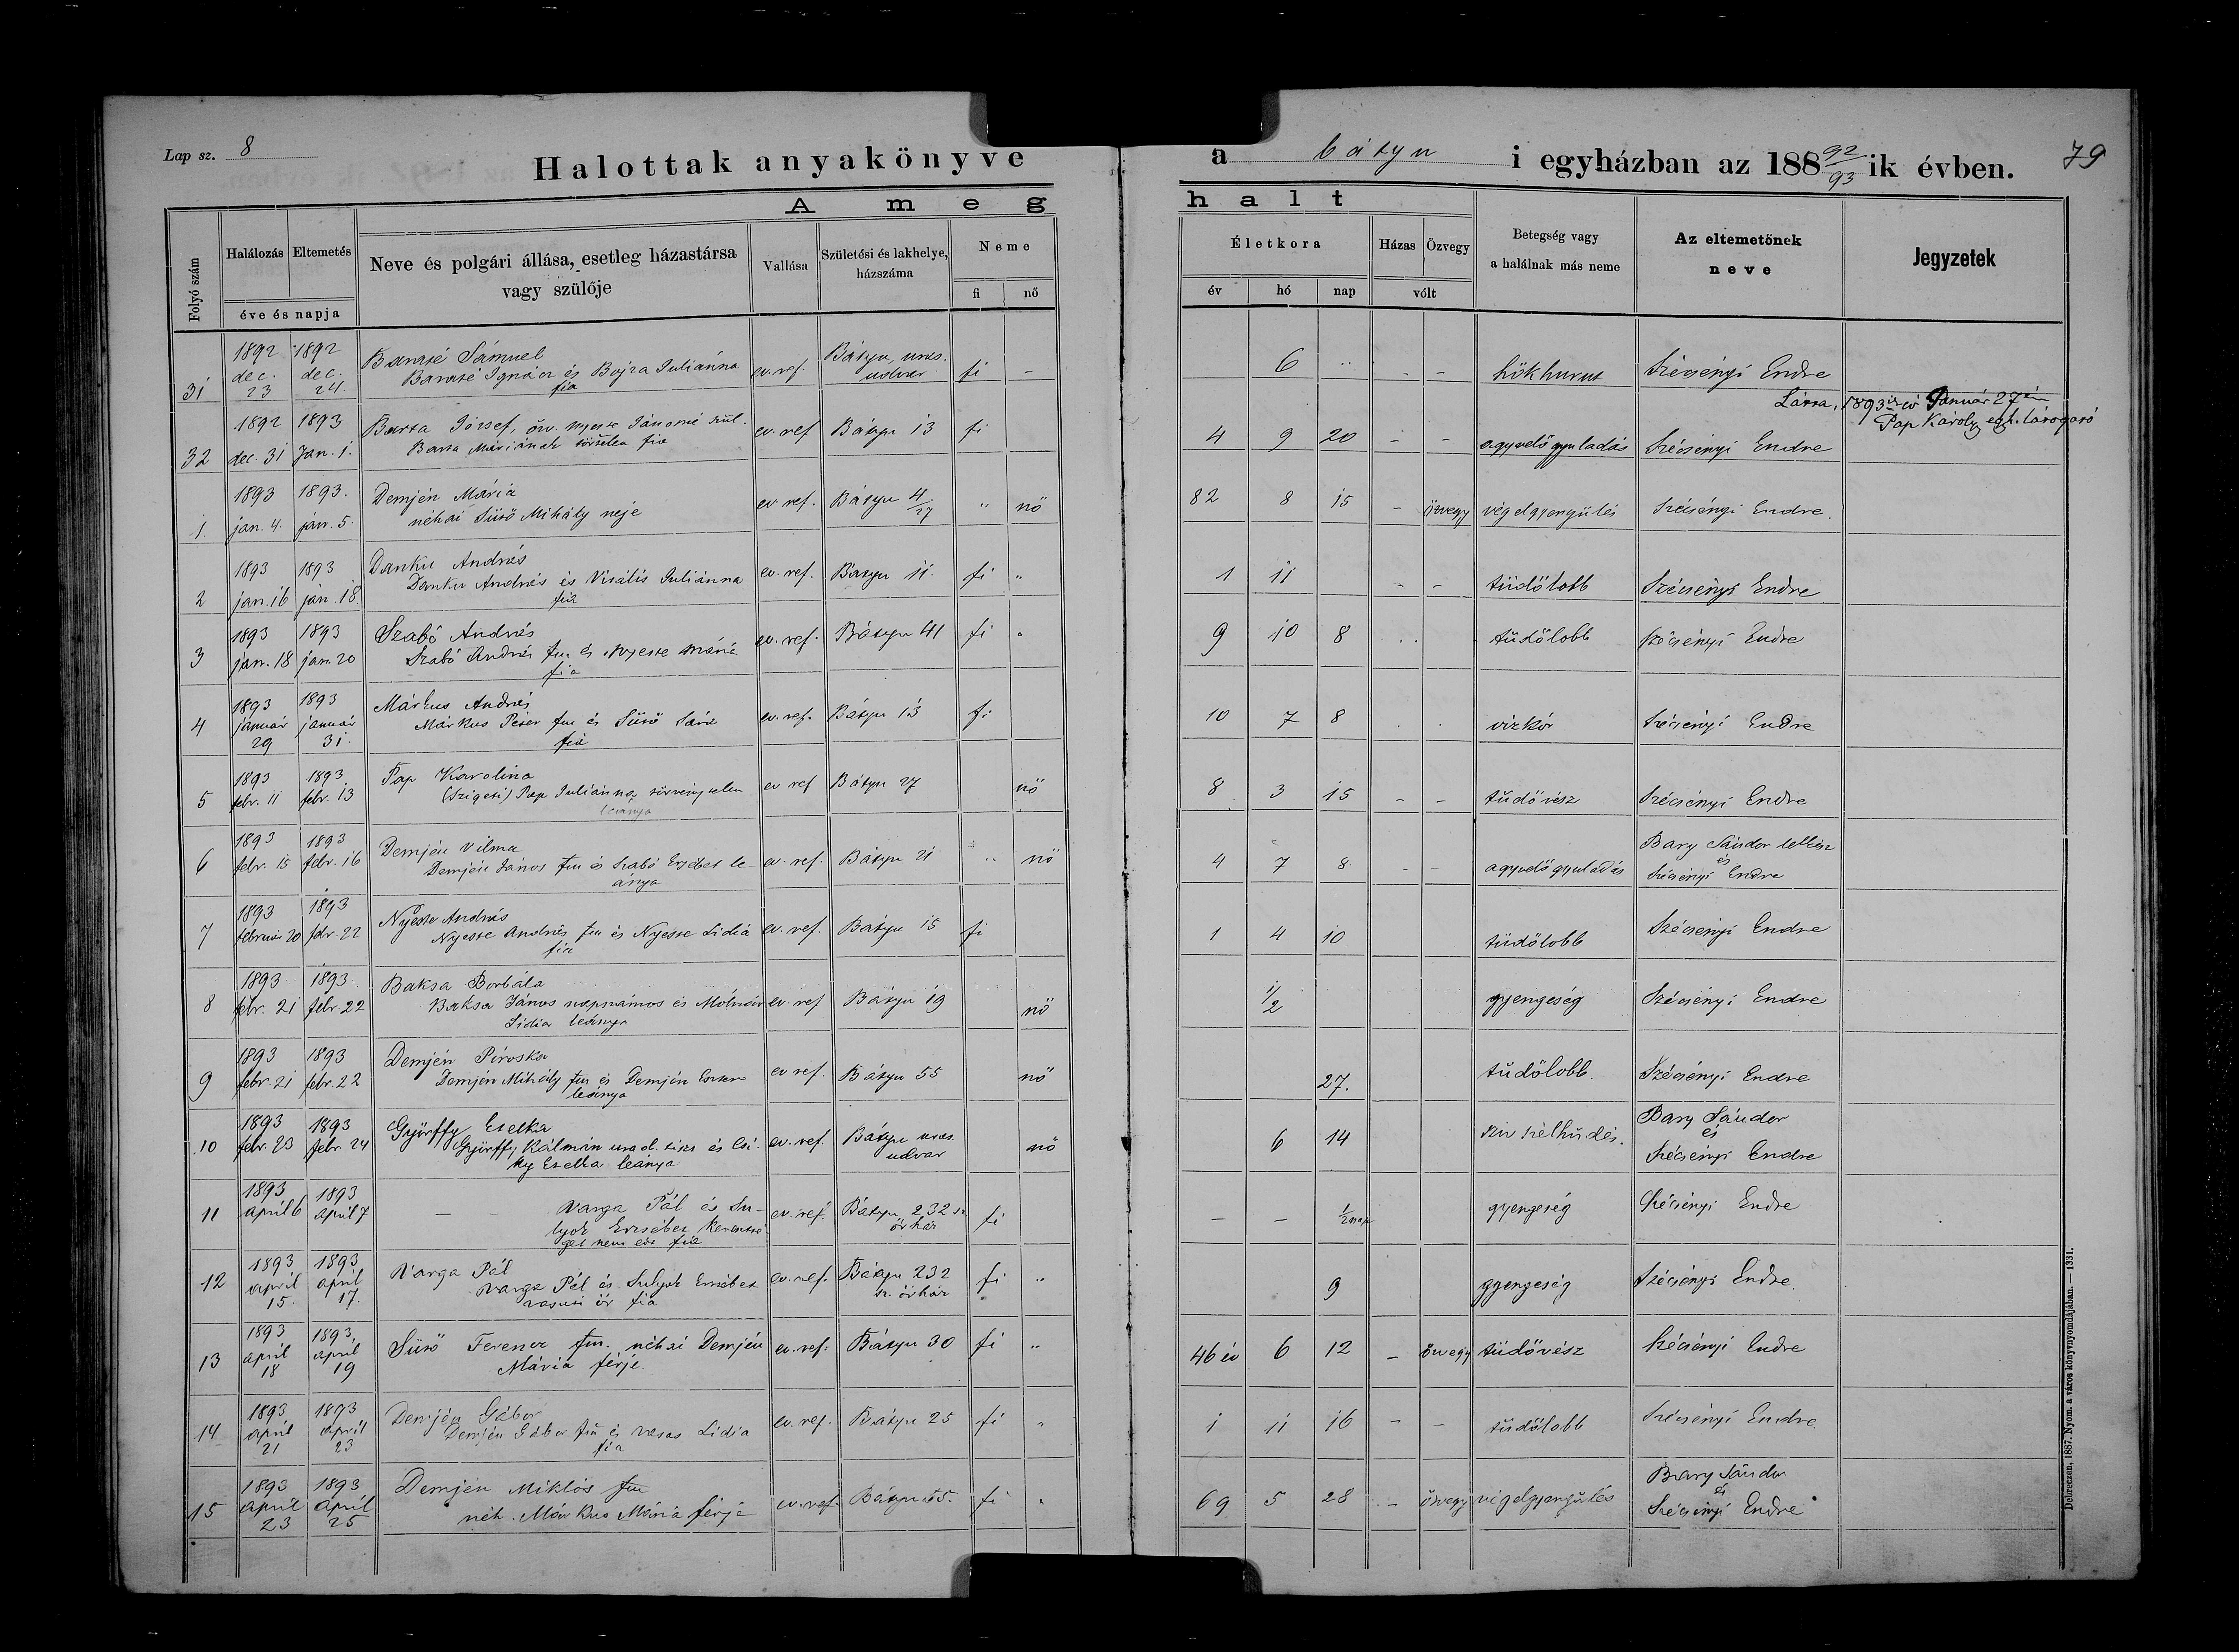 Lap sz. 8
Halottak anyakönyve a bátyu i egyházban az 188 92/93 ik évben.
79
A meghalt
Folyó szám
Halálozás Eltemetés
éve és napja
Neve és polgári állása, esetleg házastársa
vagy szülője
Vallása
Születési és lakhelye,
házszáma
Neme
fi nő
Életkora
év hó nap
Házas Özvegy
vólt
Betegség vagy
a halálnak más neme
Az eltemetőnek
neve
Jegyzetek
31 1892 dec. 23 1892 dec. 24. Sámuel
Ignácz és Bojza Juliánna
fia
ev. ref. Bátyu, uras.
udvar
fi - 6 - - hökhurut Szécsényi Endre
Látta, 1893ik év Január 27én
Pap Károly egh. látogató
32 1892 dec. 31 1893 Jan. 1. Barta József, özv. Nyeste Jánosné szül.
Barta Máriának törvtelen fia
ev. ref Bátyu 13 fi 4 9 20 - - agyvelőgyuladás Szécsényi Endre
1. 1893 jan. 4. 1893. jan. 5. Demjén Mária
néhai Sürő Mihály neje
ev ref. Bátyu 4/27 " nő 82 8 15 - özvegy végelgyengülés Szécsényi Endre.
2 1893 jan. 16 1893 jan. 18. Danku András
Danku András és Vitális Juliánna
fia
ev. ref. Batyu 11. fi " 1 11 - - tüdőlobb Szécsényi Endre
3 1893 jan. 18 1893 jan. 20 Szabó András
Szabó András fm és Nyeste Mária
fia
ev. ref. Bátyu 41 fi " 9 10 8 tüdőlobb Szécsényi Endre
4 1893 január 29 1893 január 31. Márkus András
Márkus Péter fm és Sürő Sára
fia
ev. ref. Bátyu 13 fi 10 7 8 vizkór Szécsényi Endre
5 1893 febr. 11 1893 febr. 13 Pap Karolina
(Szigeti) Pap Juliánna törvénytelen
leánya
ev ref Bátyu 27 nő 8 3 15 - - tüdővész Szécsényi Endre
6 1893 febr. 15 1893 febr. 16 Demjén Vilma
Demjén János fm és Szabó Erzsébet le-
ánya
ev. ref. Bátyu 21 " nő 4 7 8. - - agyvelőgyuladás Bary Sándor lelkész
és
Szécsényi Endre
7 1893 február 20 1893 febr. 22 Nyeste András
Nyeste András fm és Nyeste Lidia
fia
ev. ref. Bátyu 15 fi 1 4 10 tüdőlobb Szécsényi Endre
8 1893 febr. 21 1893 febr. 22 Baksa Borbála
Baksa János napszámos és Molnár
Lidia leánya
ev. ref Bátyu 19 nő 1/2 gyengeség Szécsényi Endre
9 1893 febr. 21 1893 febr. 22 Demjén Piroska
Demjén Mihály fm és Demjén Eszter
leánya
ev ref. Bátyu 55 nő 27. tüdőlobb. Szécsényi Endre
10 1893 febr. 23 1893 febr. 24 Györffy Etelka
Györffy Kálmán urad. tiszt és Csi-
ky Etelka leánya
ev. ref. Bátyu uras.
udvar
nő 6 14 sziv szélhüdés. Bary Sándor
és
Szécsényi Endre
11 1893 april 6 1893 april 7 - - Varga Pál és Su-
lyok Erzsébet keresztsé
get nem ért fia
ev. ref. Bátyu 232 sz
őrház
fi - - 1/2 nap gyengeség Szécsényi Endre
12 1893 april 15. 1893. april 17. Varga Pál
Varga Pál és Sulyok Erzsébet
vasuti őr fia
ev. ref. Bátyu 232
sz. őrház
fi " 9 gyengeség Szécsényi Endre.
13 1893 april 18 1893, april 19 Sürő Ferencz fm. néhai Demjén
Mária férje.
ev. ref. Bátyu 30 fi " 46 év 6 12 - özvegy tüdővész Szécsényi Endre
14 1893. april 21 1893 april 23 Demjén Gábor
Demjén Gábor fm és Vasas Lidia
fia
ev. ref. Bátyu 25 fi " 1 11 16 - - tüdőlobb Szécsényi Endre.
15 1893 april 23 1893 april 25 Demjén Miklós fm
néh. Márkus Mária férje
ev. ref. Bátyu 55. fi " 69 5 28 - özvegy végelgyengülés Bary Sándor
és
Szécsényi Endre
Debreczen, 1887. Nyom. a város könyvnyomdájában. — 1331.